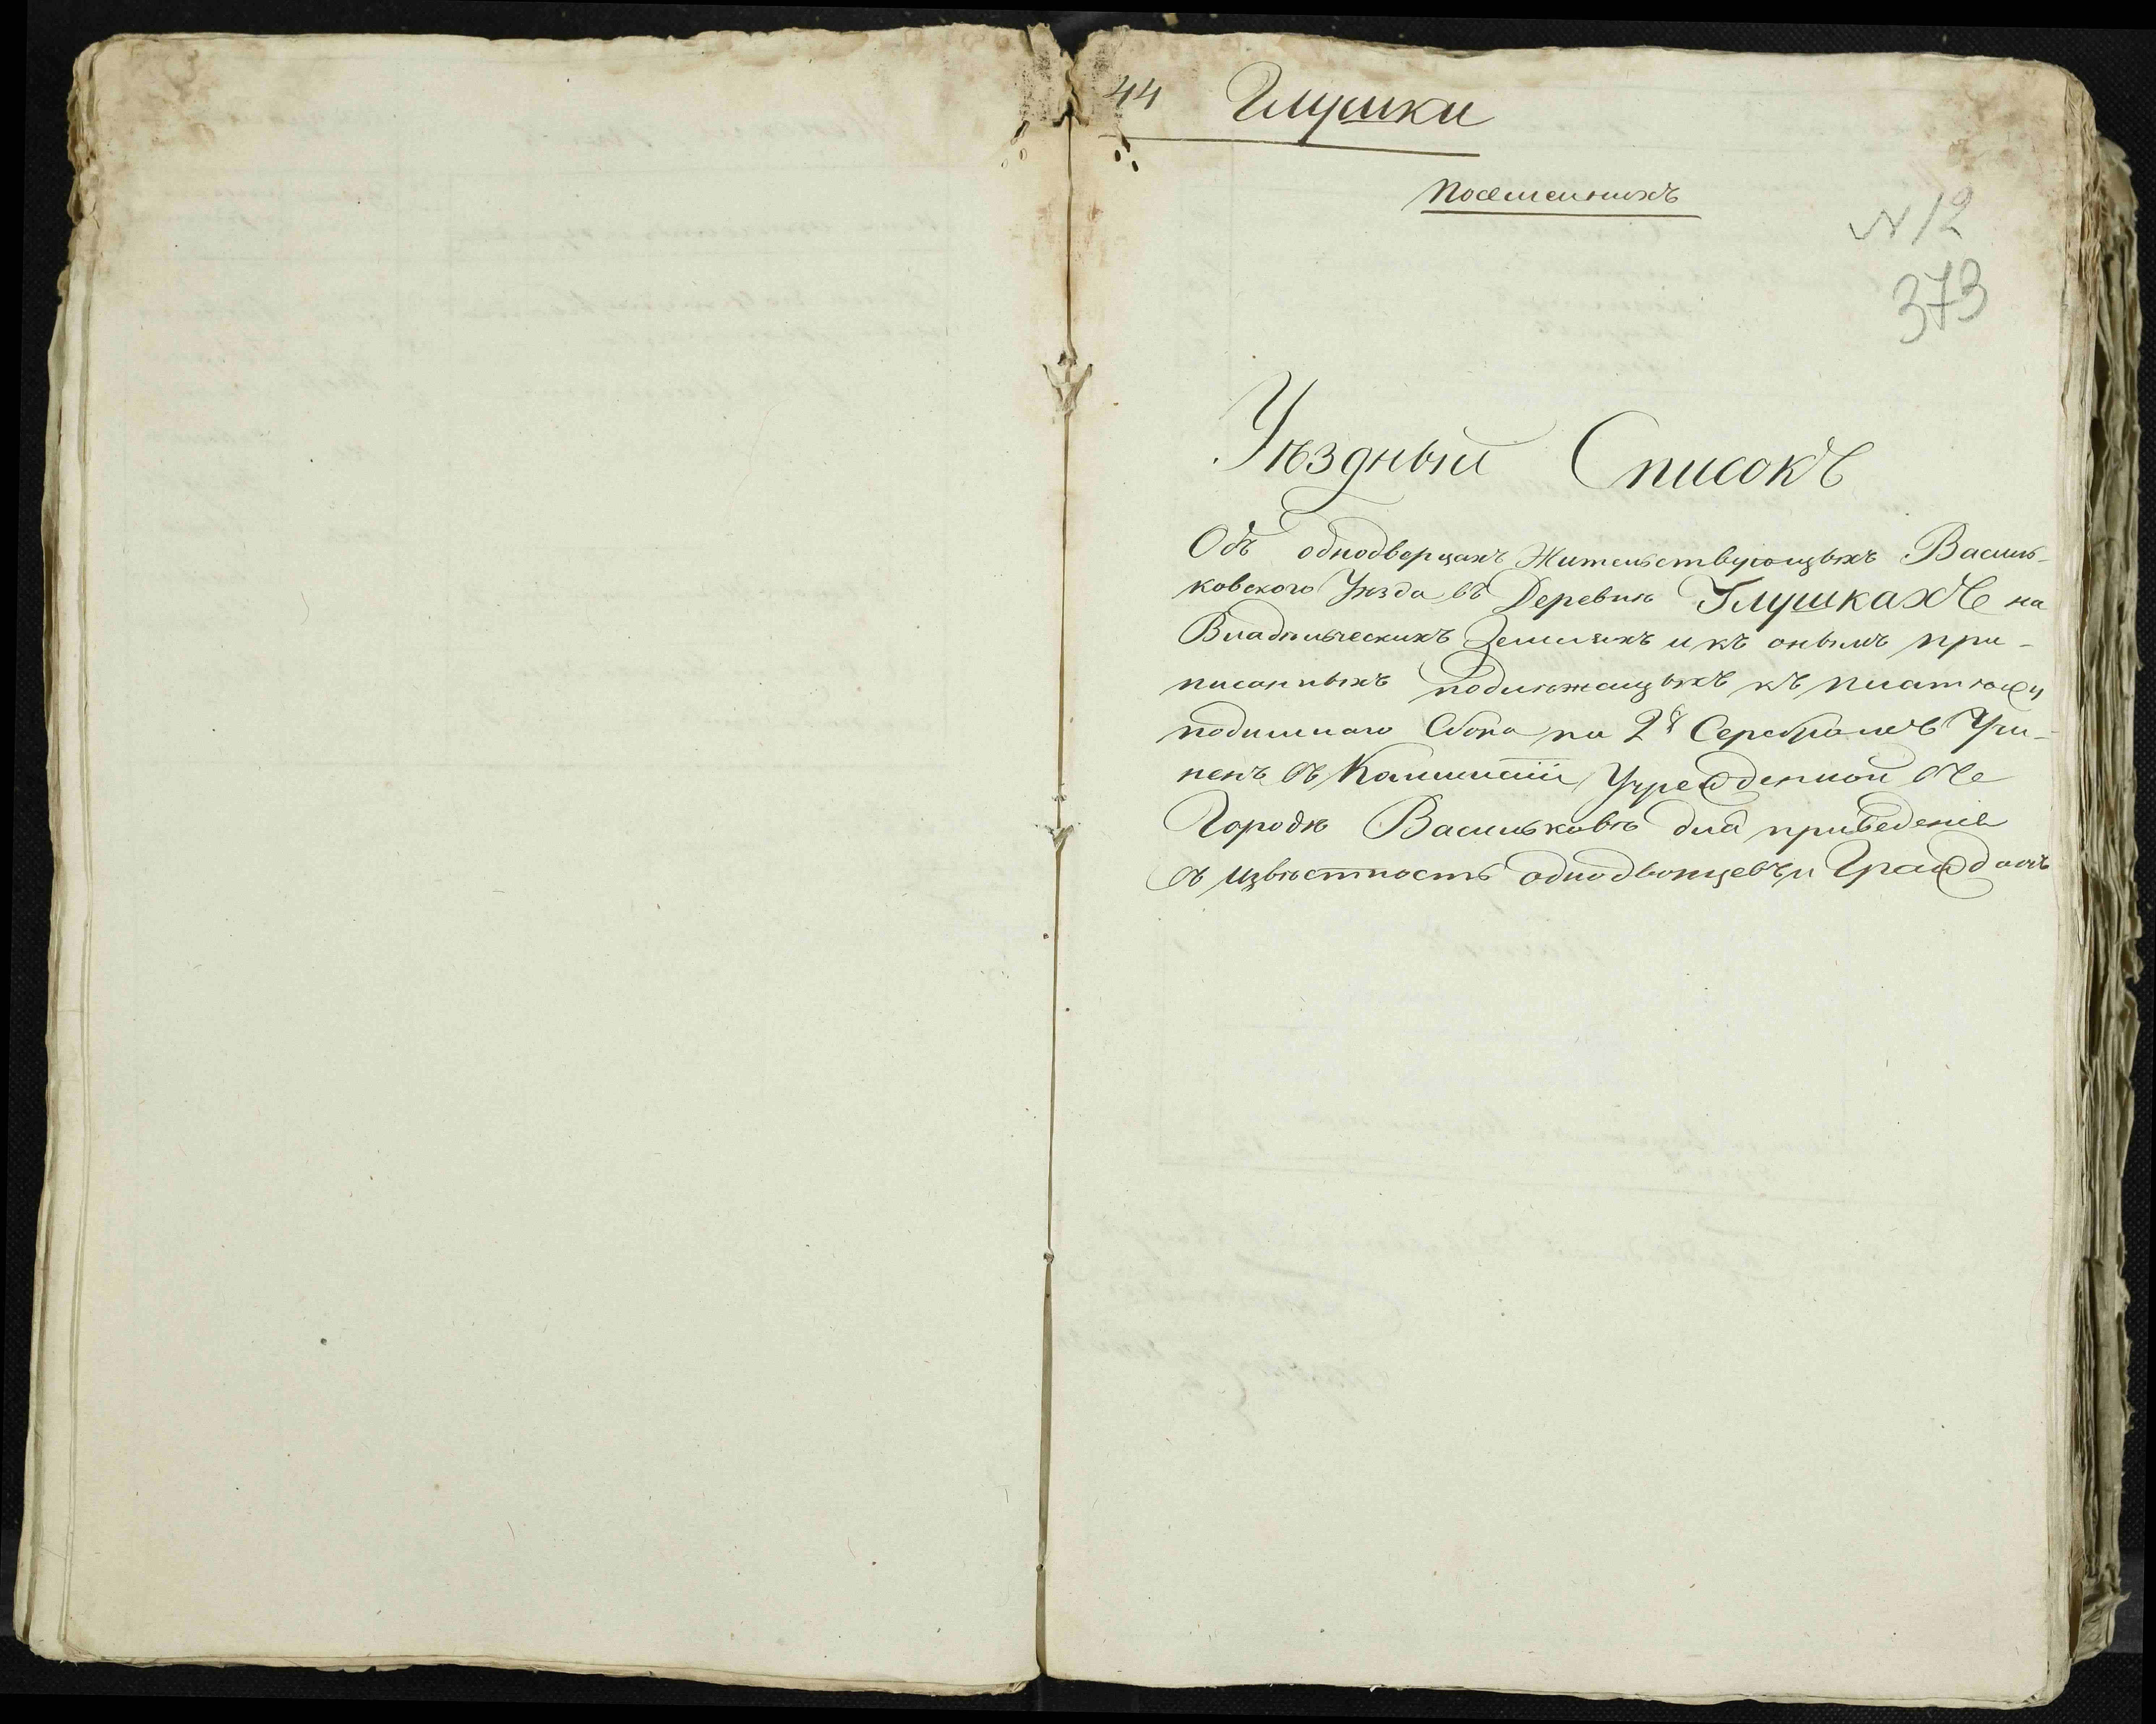 44 Глушки
Поселенныхъ
N 12
373
Уѣздный Списокъ
Объ однодворцахъ Жительствующыхъ Василь-
ковского Уѣзда въ Деревнѣ Глушкахъ на
Владѣльческихъ Земляхъ и къ онымъ при-
писанныхъ подлѣжащыхъ къ платежу
подимнаго Сбора по 2 Серебромъ Учи-
ненъ въ Коммиссіи Учрежденной въ
Городѣ Васильковѣ для приведенія
въ извѣстность однодворцевъ и Гражданъ